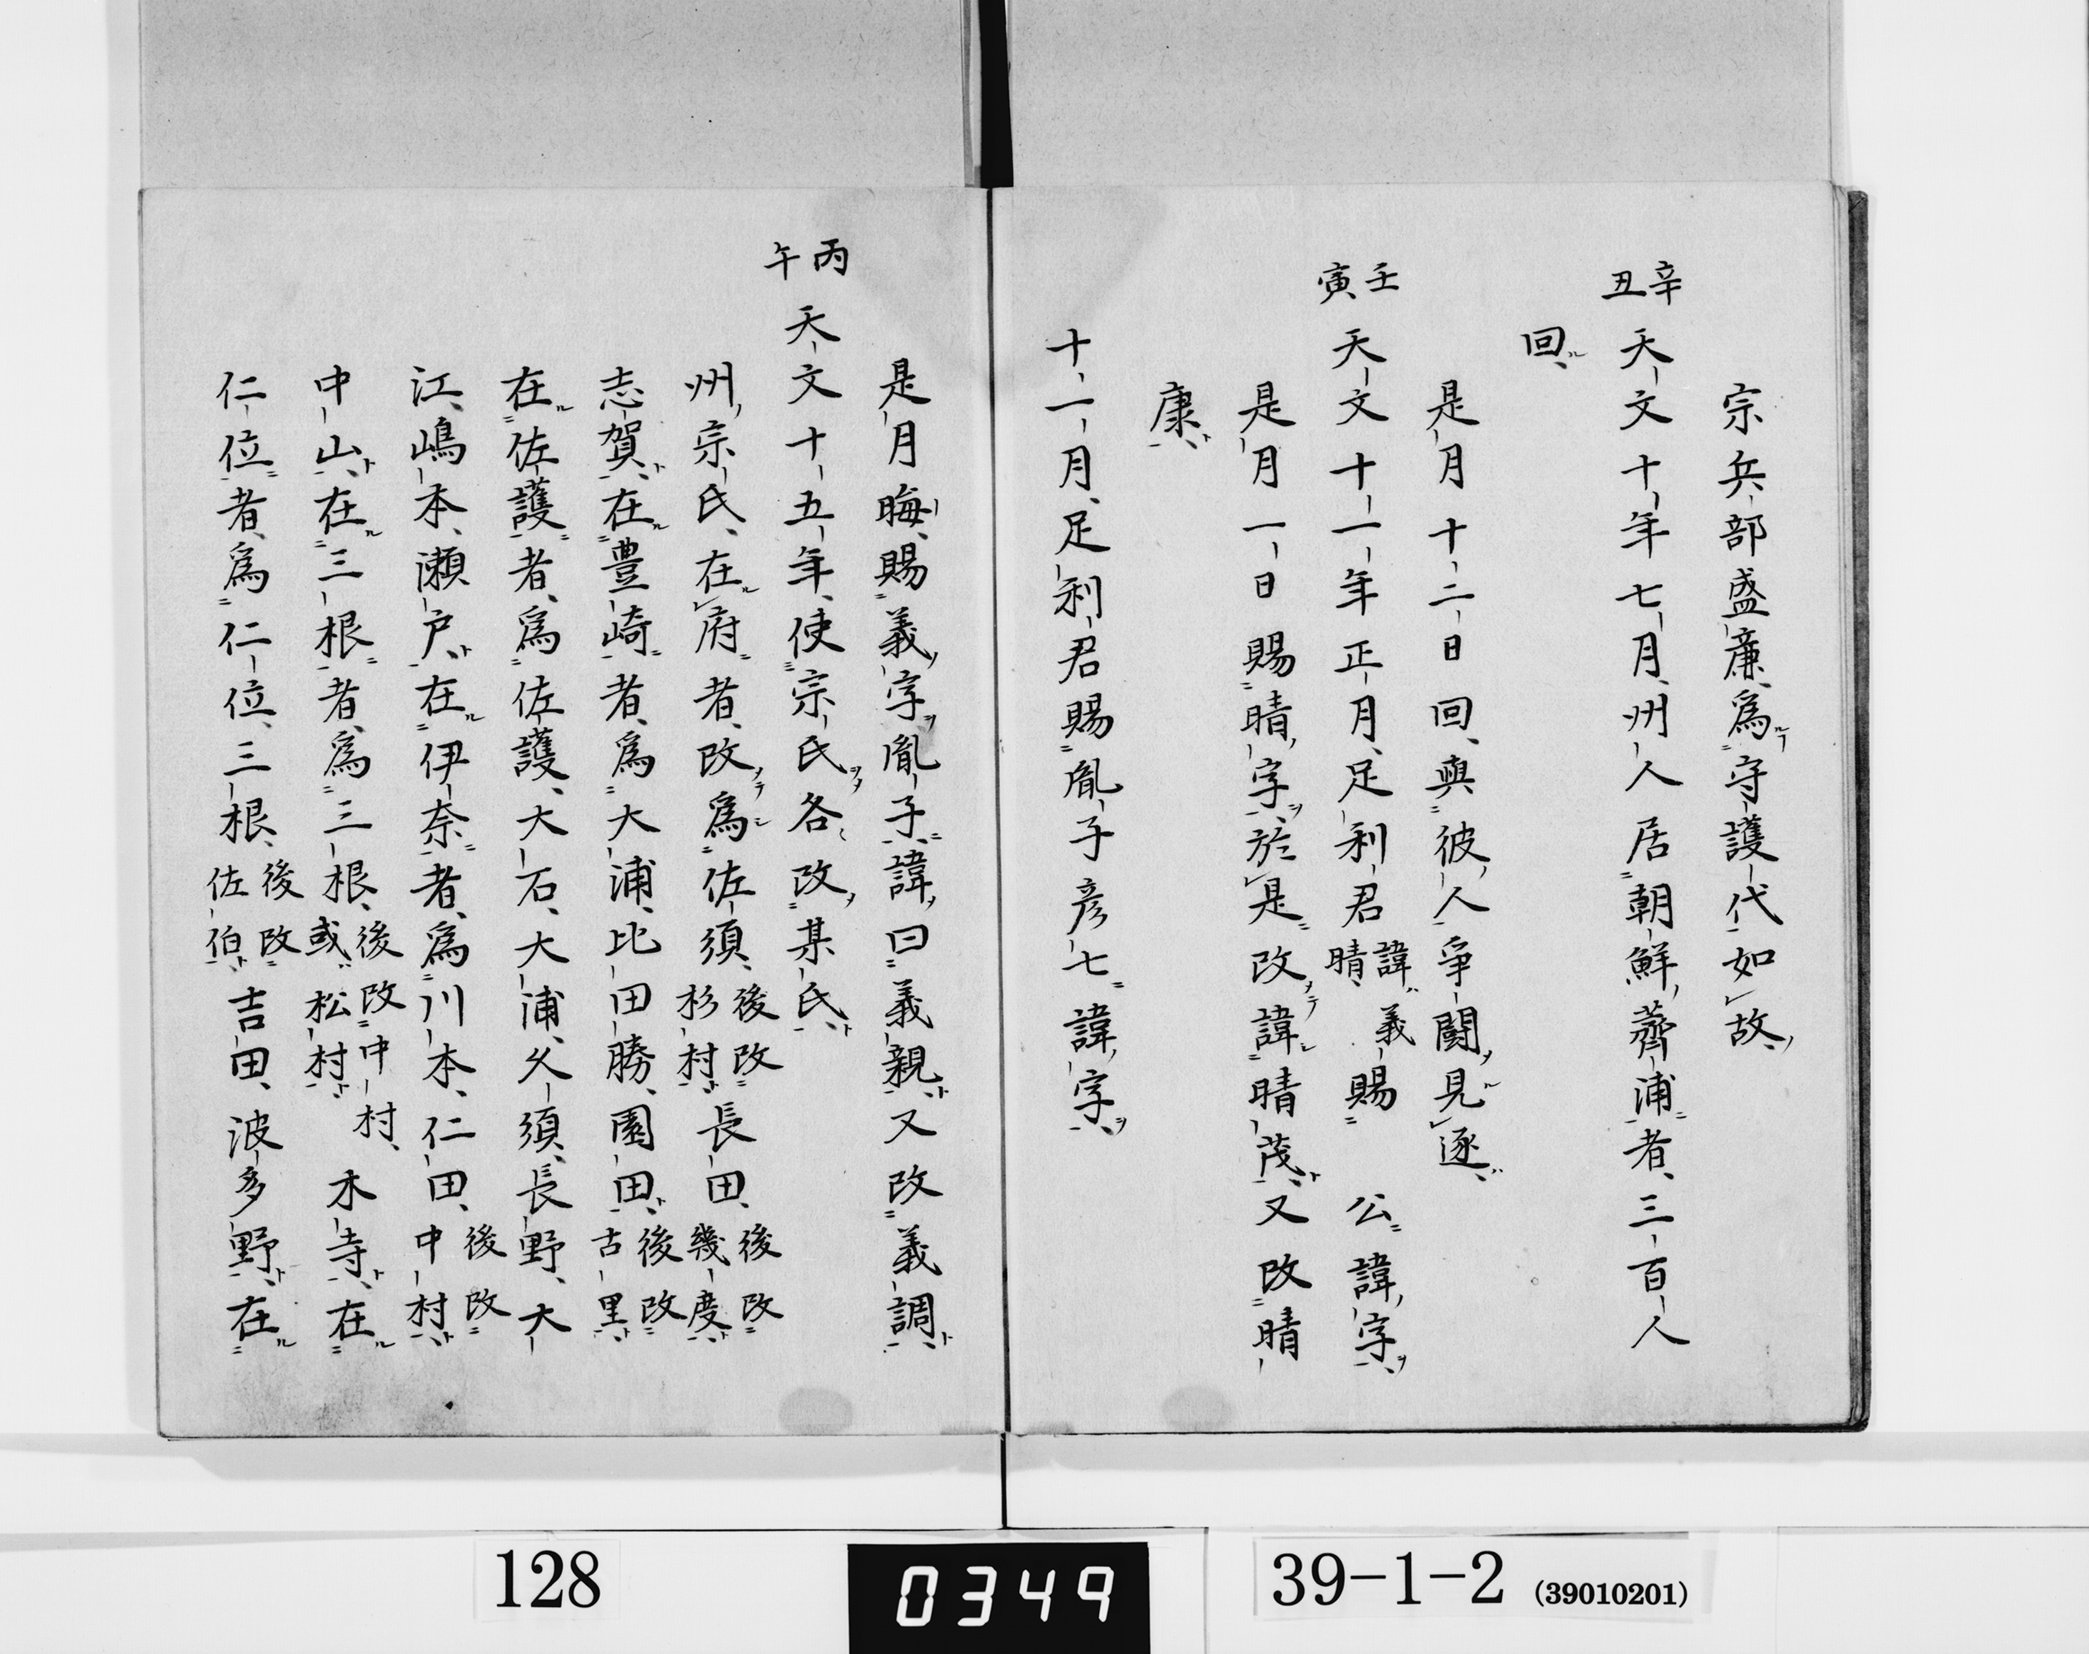 宗兵部盛廉爲守護代如故
辛丑
天文十年七月州人居朝鮮薺浦者三百人
回
是月十二日回與彼人爭闘見逐
壬寅
天文十一年正月足利君諱義晴賜 公諱字
是月一日賜晴字於是改諱晴茂又改晴
康
十一月足利君賜胤子彦七諱字
是月晦賜義字胤子諱曰義親又改義調
丙午
天文十五年使宗氏各改某氏
州宗氏在府者改爲佐須後改杉村長田後改幾度
志賀在豊崎者爲大浦比田勝園田後改古里
在佐護者爲佐護大石大浦久須長野大
江嶋本瀬戸在伊奈者爲川本仁田後改中村
中山在三根者爲三根後改中村或松村木寺在
仁位者爲仁位三根後改佐伯吉田波多野在
128
0349
39-1-2 (39010201)